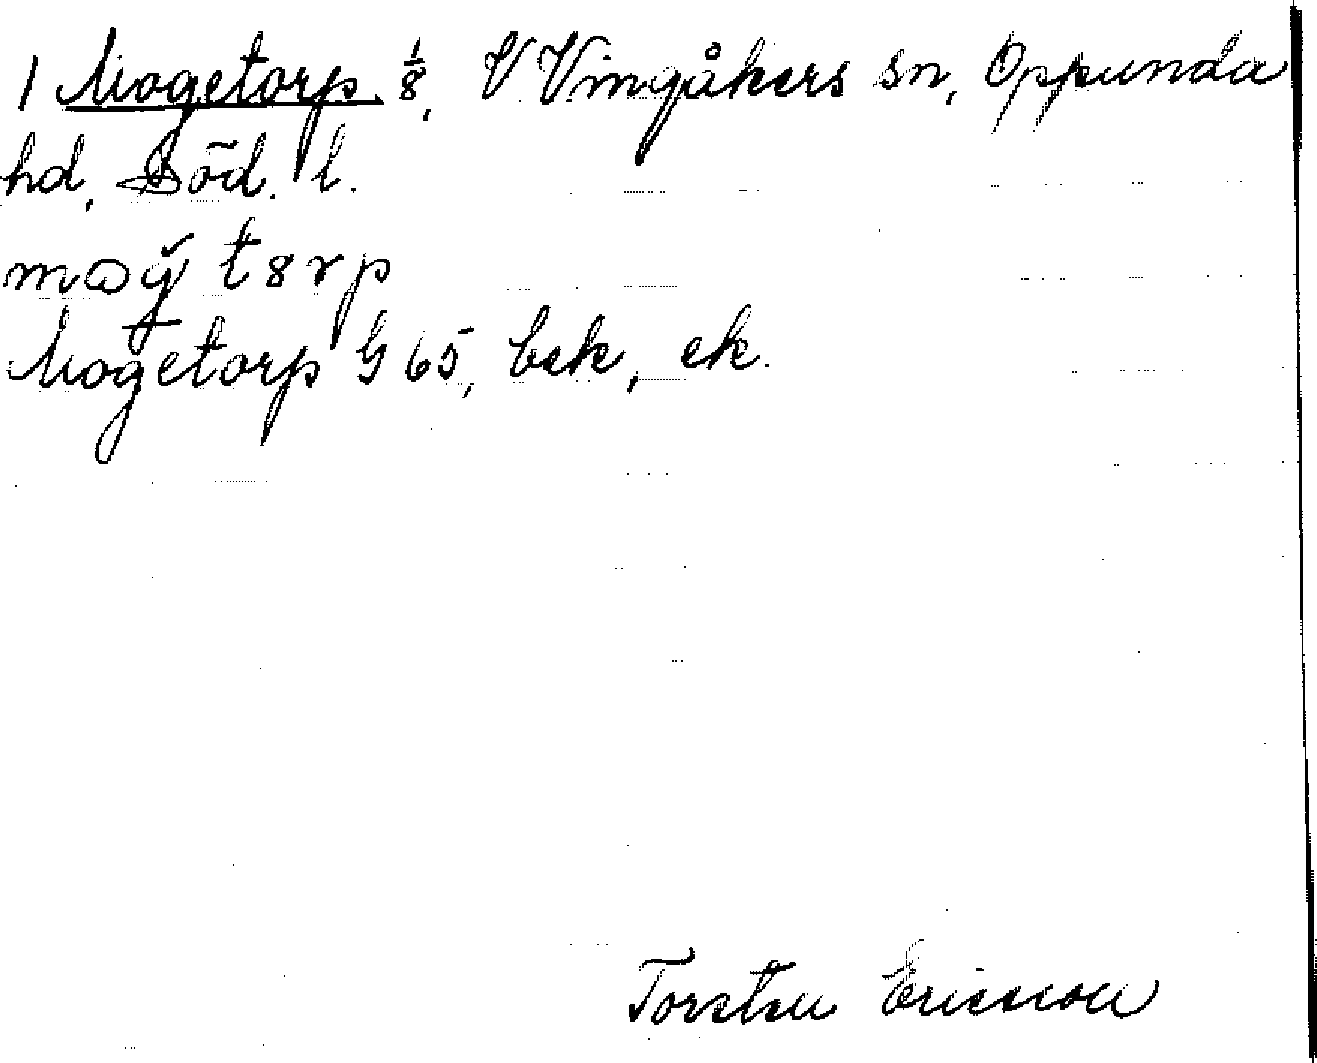 1 Mogetorp 1/8, V Vingåkers sn, Oppunda
hd, Söd. l.
Mogetorp G 65, bek, ek.
Torsten Ericsson